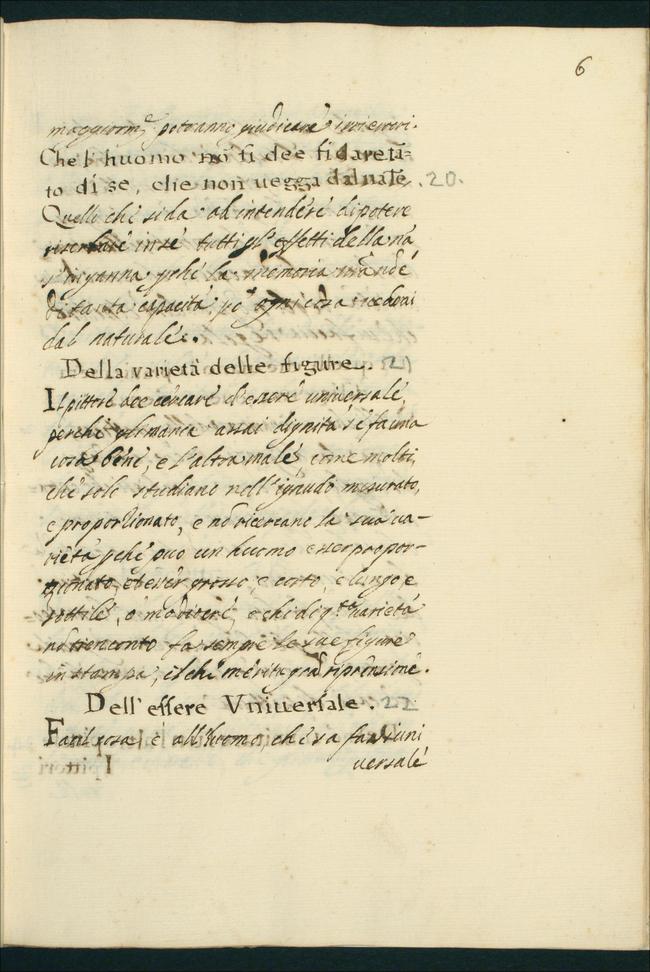 6
maggiorm.e potranno giudicare i pareri.
Che l huomo nō si dee fidare tā=
to di se, che non uegga dal nāle. 20.
Quelli chi si da ad intenderé di potere
riserbaré in sé tutti gl' effetti della nā
s' inganna pché la memoria nrā nō é
di tanta capacità; pō ogni cosa vedrai
dal naturalé.
Della varietà delle figure. 21
Il pittoré dee cercaré d'esseré universalé,
perché gli manca assai dignità sé fa una
cosa béné, e l'altra malé, come molti,
ché solo studiano nell' ignudo misurato,
e proporzionato, e nō ricercano la sua ua-
rietà, pché può un huomo esser propor-
zionato, et esser grosso, e corto, e lungo, e
sottilé, o mediocré, e chi di q.ta uarietà
nō tien conto fa sempre le sue figuré
in stampa, il ché mérita grā riprēnsioné.
Dell' essere Vniuersale. 22
Facil cosa é all' huomo, ché sa farsi uni
uersalé